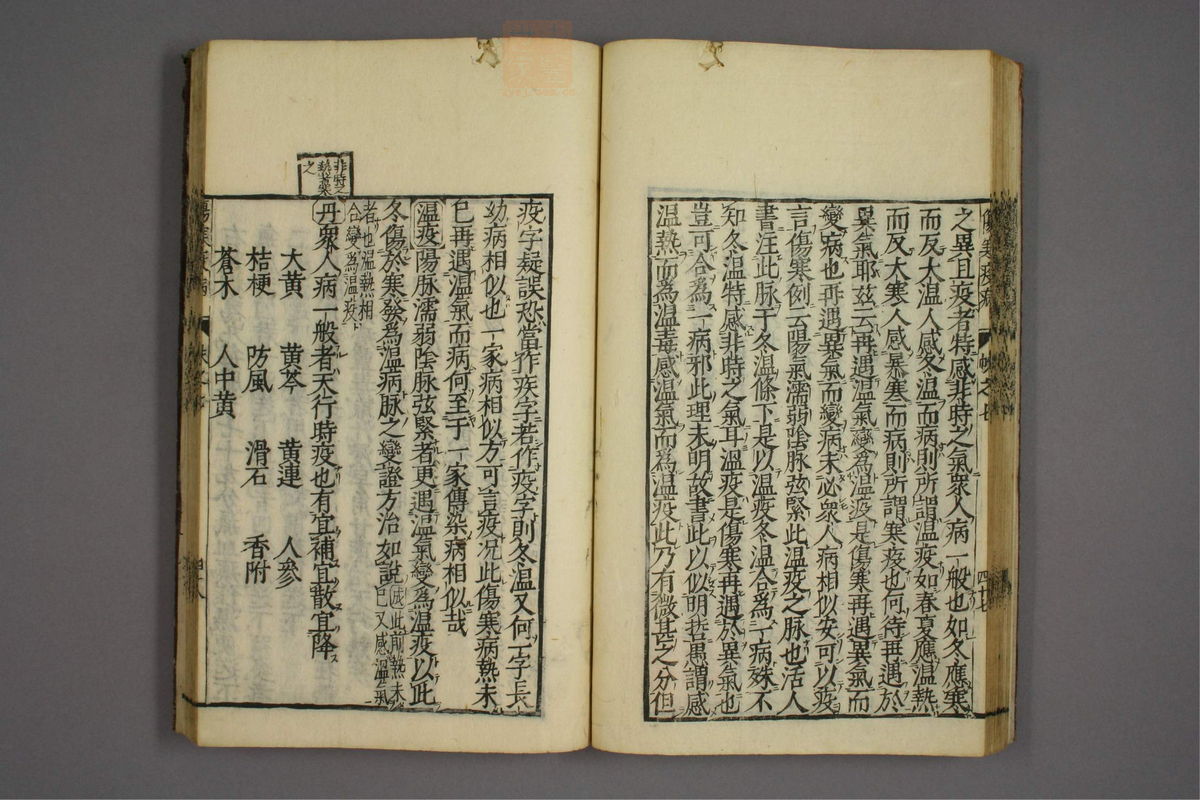 之異且疫者特感非時之氣衆人病一般也如冬應寒
而反大温人感冬温而病則所謂温疫如春夏應温熱
而反大寒人感暴寒而病則所謂寒疫也何待再遇於
異氣耶茲云再遇温氣變為温疫是傷寒再遇異氣而
變病也再遇異氣而變病未必衆人病相似安可以疫
言傷寒例云陽氣濡弱陰脉弦緊此温疫之脉也活人
書注此脉于冬温條下是以温疫冬温合為一病殊不
知冬温特感非時之氣耳温疫是傷寒再遇於異氣也
豈可合為一病邪此理未明故書此以似明哲愚謂感
温熱而為温毒感温氣而為温疫此乃有微甚之分但
疫字疑誤恐當作疾字若作疫字則冬温又何一字長
幼病相似也一家病相似方可言疫况此傷寒病熱未
已再遇温氣而病何至于一家傳染病相似哉
温疫陽脉濡弱陰脉弦緊者更遇温氣變為温疫以此
冬傷於寒發為温病脉之變證方治如說此前熱未
已又感温氣
者也温熱相
合變為温疫
非時之
之
丹衆人病一般者天行時疫也有宜補宜散宜降
大黄 黄芩 黄連 人參
桔梗 防風 滑石 香附
蒼术 人中黄